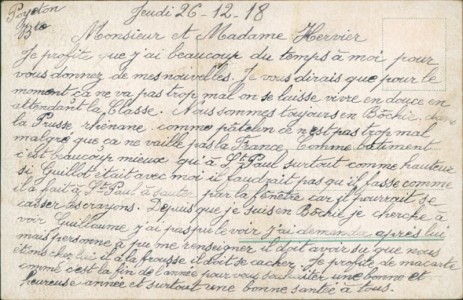 Poyeton
Jeudi 26-12-18
Monsieur et Madame Hervier
Je profite que j'ai beaucoup du temps à moi pour
vous donnez de mes nouvelles. Je vous dirais que pour le
moment ca ne va pas trop mal on se laisse vivre en douce en
attendant la Classe. Nous sommes toujours en Bôchie, dans
la Prusse rhénane, comme patelin ce n'est pas trop mal
malgré que ca ne vaille pas la France. Comme bâtiment
c'est beaucoup mieux qu'à St Paul surtout comme hauteur
si Guillot était avec moi il faudrait pas qu'il fasse comme
il a fait à St Paul à sauter par la fenêtre car il pourrait se
casser les crayons. Depuis que je suis en Bôchie je cherche à
voir Guillaume j'ai pas pu le voir j'ai demander après lui
mais personne à pu me renseigner il doit avoir su que nous
étions chez lui il a la frousse il doit se cacher. Je profite de ma carte
comme c'est la fin de l'année pour vous souhaiter une bonne et
heureuse année et surtout une bonne santé à tous.